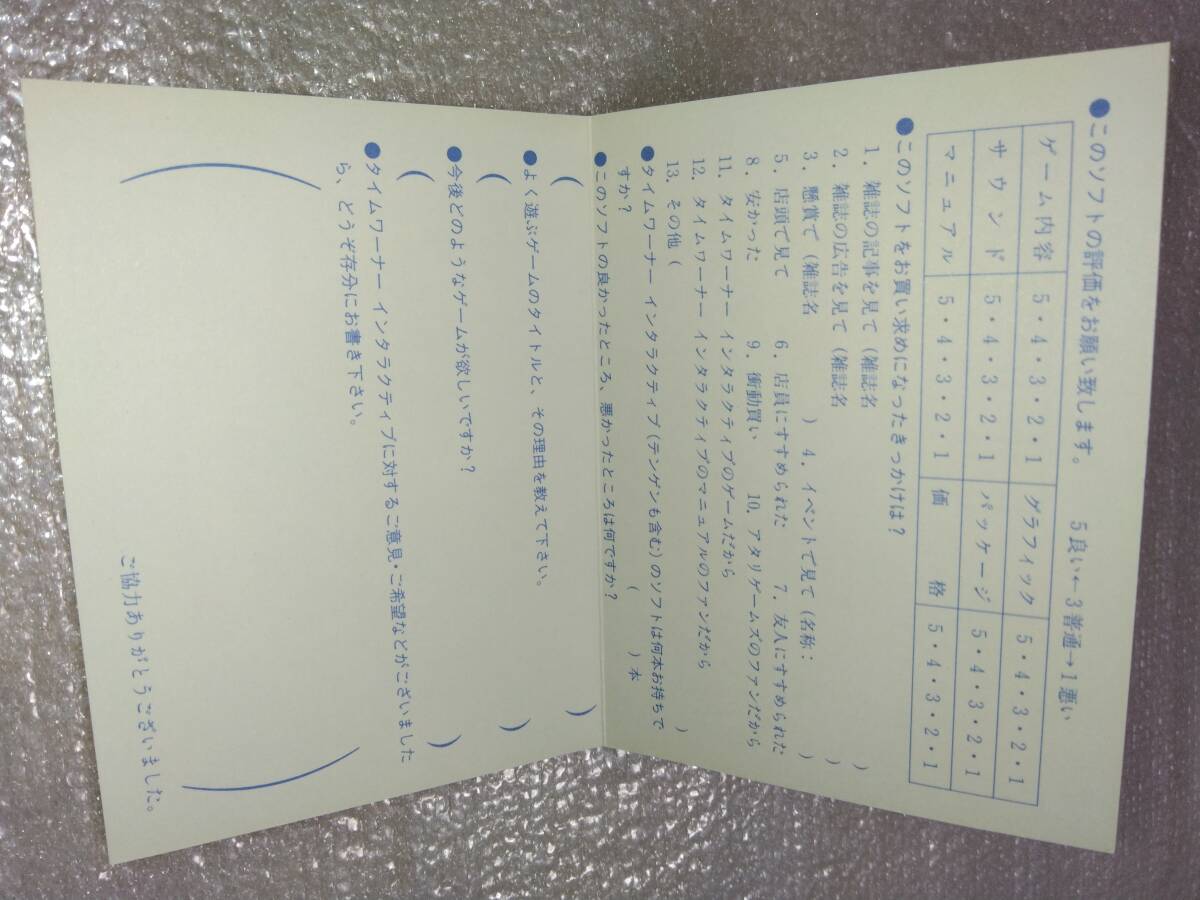 ●このソフトの評価をお願い致します。 5良い←3普通→1悪い
ゲーム内容 5・4・3・2・1 グラフィック 5・4・3・2・1
サウンド 5・4・3・2・1 パッケージ 5・4・3・2・1
マニュアル 5・4・3・2・1 価格 5・4・3・2・1
●このソフトをお買い求めになったきっかけは?
1. 雑誌の記事を見て(雑誌名 )
2. 雑誌の広告を見て(雑誌名 )
3. 懸賞で(雑誌名 ) 4. イベントで見て(名称: )
5. 店頭で見て 6. 店員にすすめられた 7. 友人にすすめられた
8. 安かった 9. 衝動買い 10. アタリゲームズのファンだから
11. タイムワーナー インタラクティブのゲームだから
12. タイムワーナー インタラクティブのマニュアルのファンだから
13. その他( )
●タイムワーナー インタラクティブ(テンゲンも含む)のソフトは何本お持ちで
すか? ( )本
●このソフトの良かったところ、悪かったところは何ですか?
( )
●よく遊ぶゲームのタイトルと、その理由を教えて下さい。
( )
●今後どのようなゲームが欲しいですか?
( )
●タイムワーナー インタラクティブに対するご意見・ご希望などがございました
ら、どうぞ存分にお書き下さい。
( )
ご協力ありがとうございました。